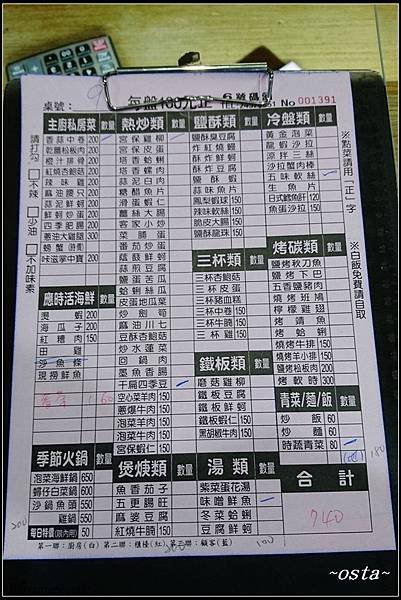 桌號：9 每盤100元正 No 001391
主廚私房菜 數量
香蒜中卷 200
乾麵松板肉 200
橙汁排骨 200
紅燒杏鮑菇 200
辣味雞 200
麻油腰只 200
蒜泥鮮蚵 200
鮮蚵炒蛋 200
四季肥腸 200
蔥油大雞腿 300
螃蟹
咔滋掌中寶 200
請打勾 □不辣 □少油 □不加味素
應時活海鮮 數量
燙蝦 200
海瓜子 200
紅糟肉 150
田雞
沙魚條
現撈鮮魚
160
季節火鍋 數量
泡菜海鮮鍋 650
蟳仔白菜鍋 600
沙鍋魚頭 550
雞鍋 550
每日特價(限內用) 50
熱炒類 數量
宮保雞柳
宮保皮蛋
塔香蛤蜊
塔香螺肉
蒜泥白肉
糖醋魚片
滑蛋蝦仁
薑絲大腸
客家小炒
菜脯蛋
番茄炒蛋
蔭豉鮮蚵
蒜煎豆腐
鹽蛋苦瓜
蛤蜊絲瓜
皮蛋地瓜葉
炒劍筍
麻油川七
豆酥杏鮑菇
炒水蓮菜
回鍋肉
墨魚香腸
干扁四季豆
空心菜羊肉 150
蔥爆牛肉 150
泡菜牛肉 150
泡菜羊肉 150
宮保蝦仁 150
煲㸆類 數量
魚香茄子
五更腸旺
麻婆豆腐
紅燒牛腩 150
鹽酥類 數量
鹽酥臭豆腐
炸紅燒鰻
酥炸鮮蚵
酥炸豆腐
鹽酥蝦
蒜味魚片
鳳梨蝦球 150
辣味軟絲 150
鹽酥軟絲 150
鹽酥龍珠 150
三杯類 數量
三杯杏鮑菇
三杯皮蛋
三杯豬血糕
三杯中卷 150
三杯牛腩 150
三杯雞 150
鐵板類 數量
蘑菇雞柳
鐵板豆腐
鐵板鮮蚵
鐵板蝦仁 150
黑胡椒牛肉 150
湯類 數量
紫菜蛋花湯
味噌鮮魚
冬菜蛤蜊
豆腐鮮蚵
冷盤類 數量
黃金泡菜
龍蝦沙拉
涼拌三絲
沙拉蟹肉棒
五味軟絲
生魚片
日式鱈魚肝 120
魚蛋沙拉 150
烤碳類 數量
鹽烤秋刀魚
鹽烤下巴
五香鹽豬肉
燒烤班鳩
檸檬雞翅
烤鯖魚
烤蛤蜊
燒烤牛排 150
燒烤羊小排 150
鹽烤松板肉 200
烤軟時 300
青菜/麵/飯 數量
炒飯 60
炒麵 60
時蔬青菜 80
合計
740
※點菜請用「正」字
※白飯免費請自取
200 300 100 180
第一聯：廚房(白) 第二聯：櫃檯(紅) 第三聯：顧客(藍)
~osta~